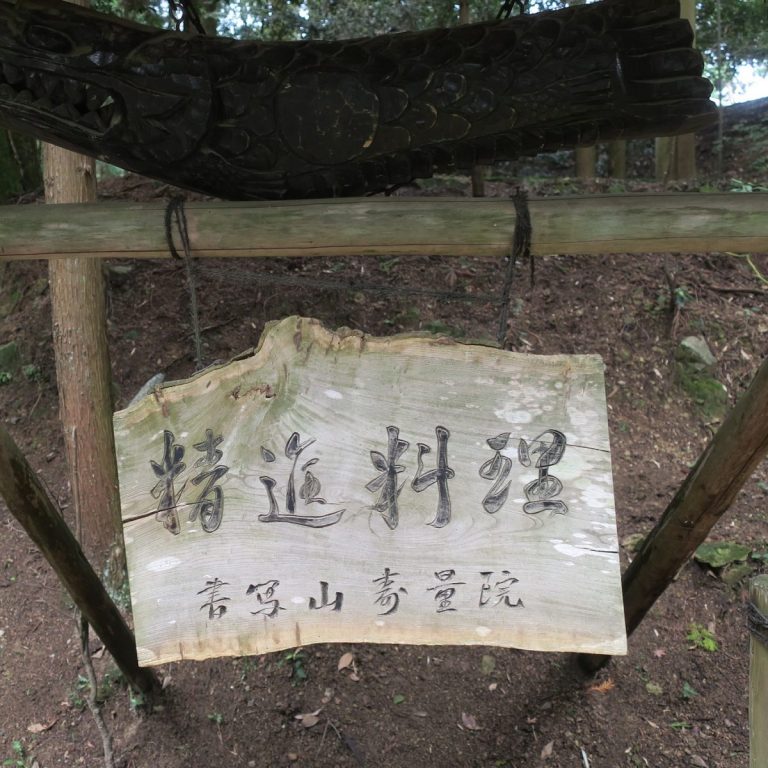 精進料理
書写山寿量院